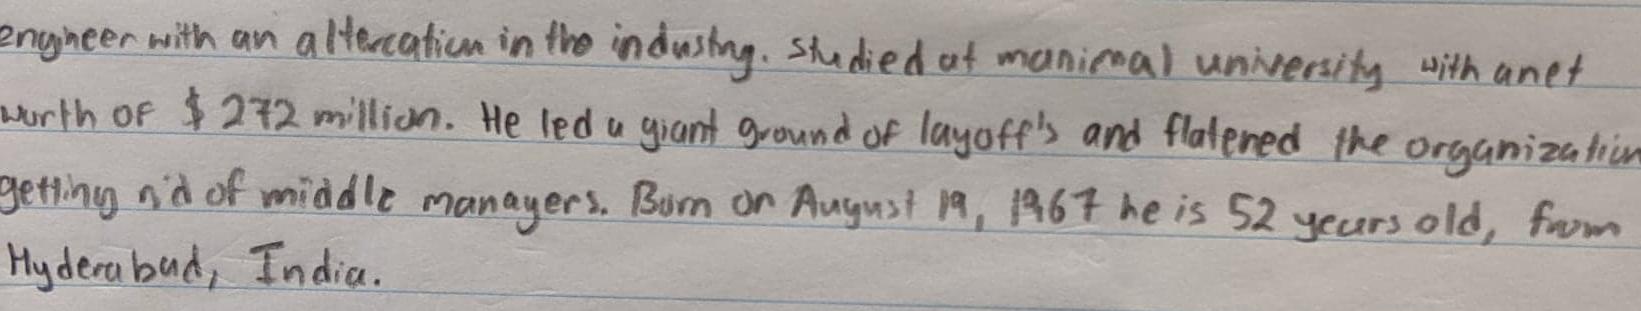 engineer with an altercation in the industry. Studied at manimal university with a net
worth of $272 million. He led a giant ground of layoff's and flatened the organization
getting rid of middle managers. Born on August 19, 1967 he is 52 years old, from
Hyderabad, India.